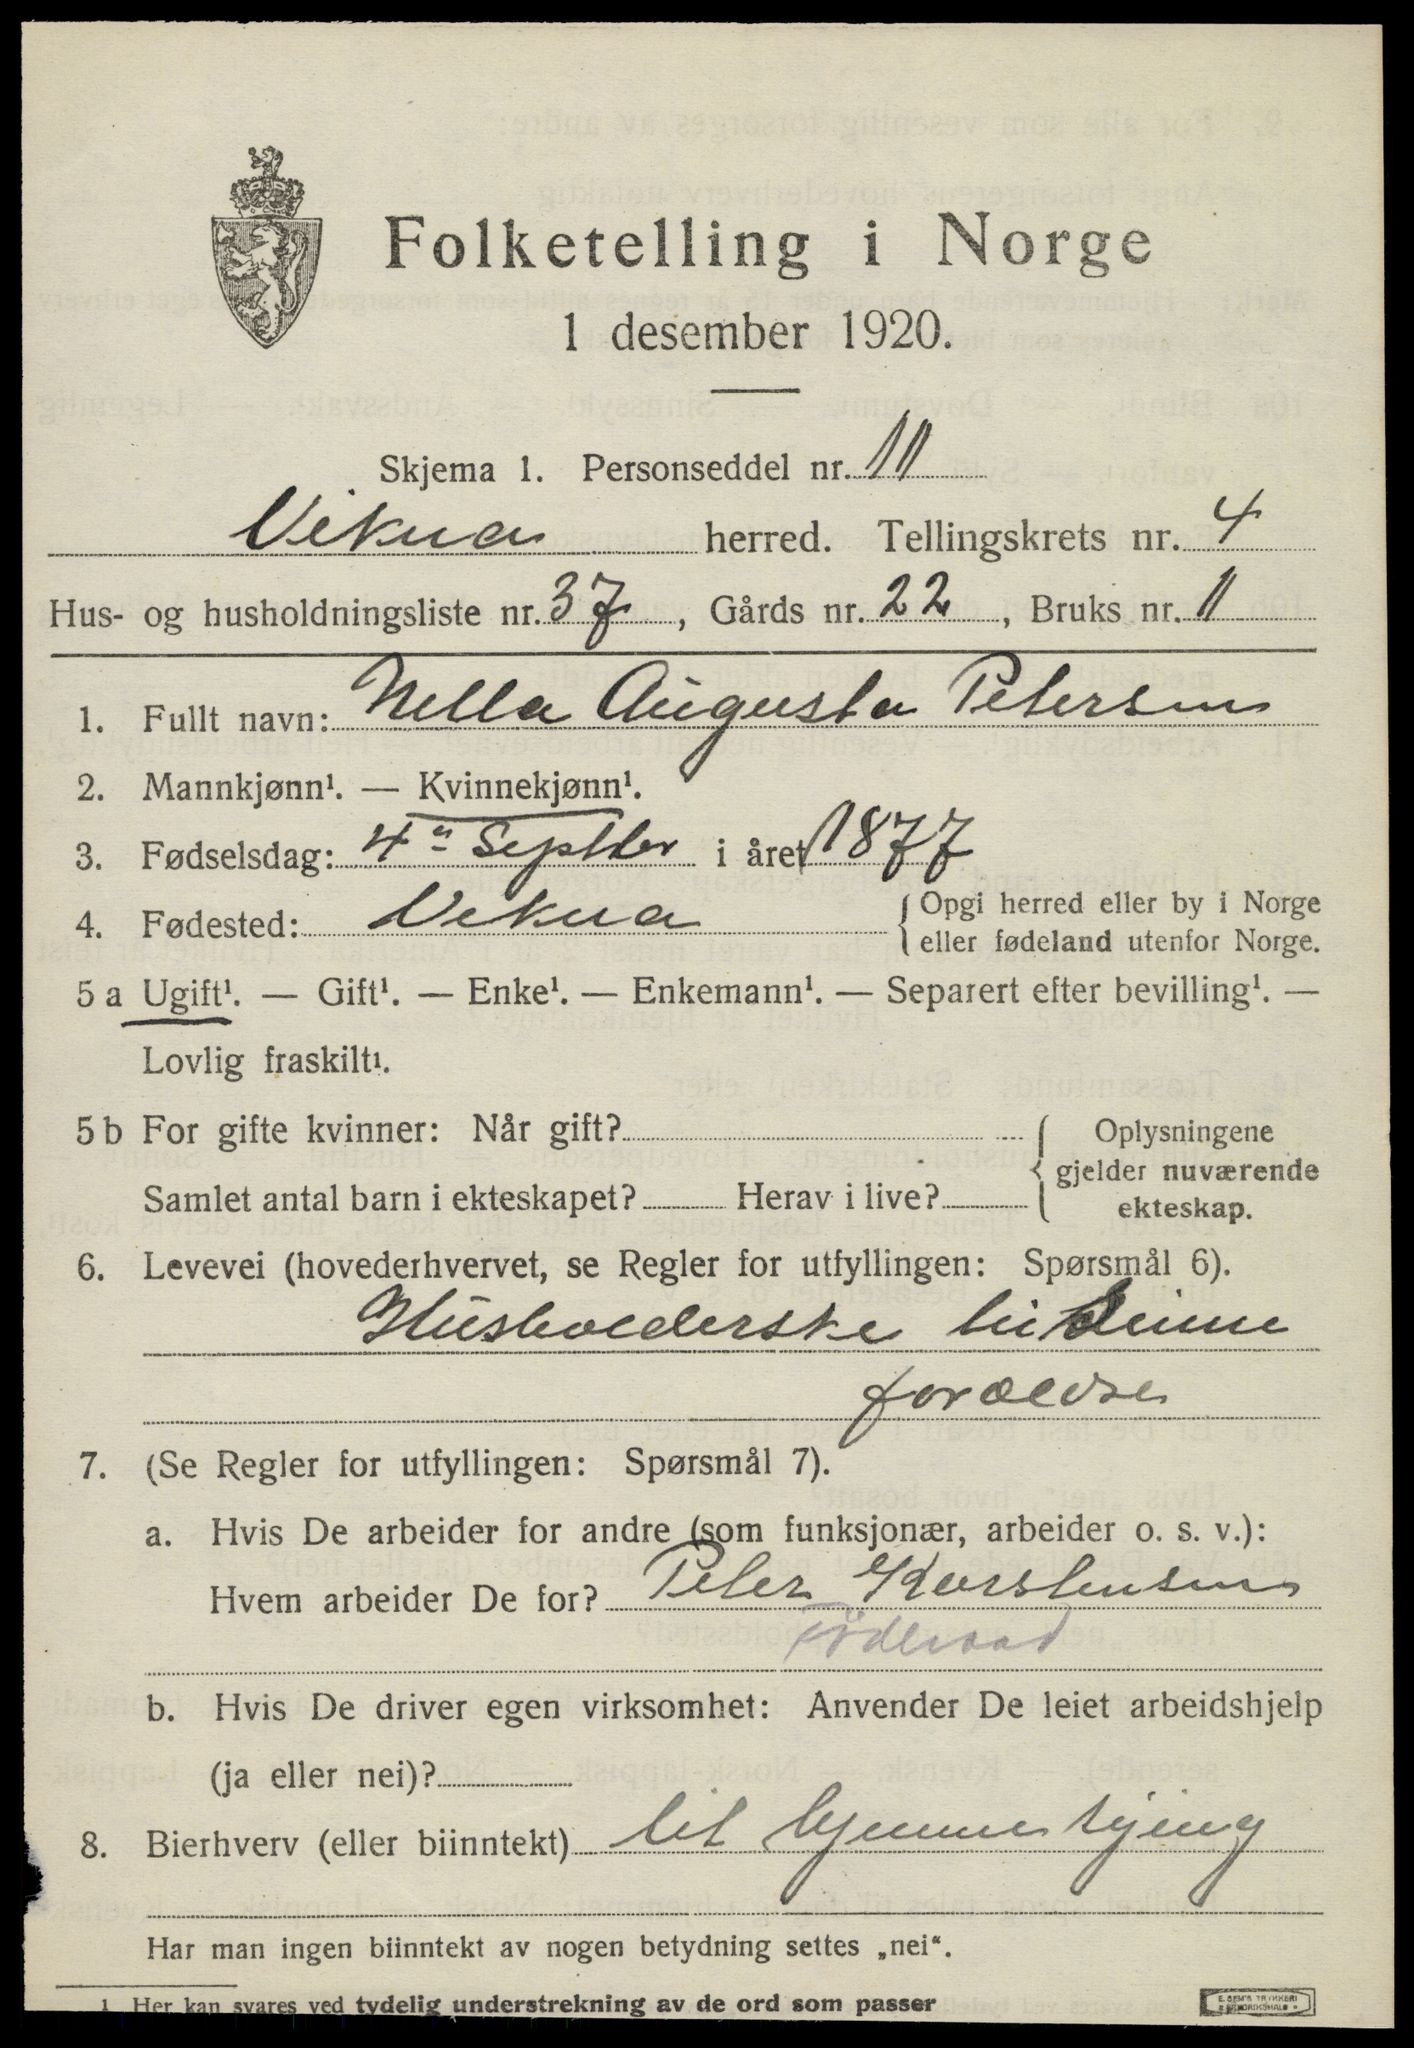 Folketelling i Norge
1 desember 1920.
Skjema 1. Personseddel nr. 11
Vikna herred. Tellingskrets nr. 4
Hus- og husholdningsliste nr. 37, Gårds nr. 22, Bruks nr. 1
1. Fullt navn: Nella Augusta Petersen
2. Mannkjønn¹. — Kvinnekjønn¹.
3. Fødselsdag: 4 Septber i året 1877
4. Fødested: Vikna {Opgi herred eller by i Norge
eller fødeland utenfor Norge.
5 a Ugift¹. — Gift¹. — Enke¹. — Enkemann¹. — Separert efter bevilling¹. —
Lovlig fraskilt¹.
5 b For gifte kvinner: Når gift? { Oplysningene
gjelder nuværende
Samlet antal barn i ekteskapet? Herav i live?
ekteskap.
6. Levevei (hovederhvervet, se Regler for utfyllingen: Spørsmål 6).
Husholderske
forældre
7. (Se Regler for utfyllingen: Spørsmål 7).
a. Hvis De arbeider for andre (som funksjonær, arbeider o. s. v.):
Hvem arbeider De for? Peter Karstensen
Föderaad
b. Hvis De driver egen virksomhet: Anvender De leiet arbeidshjelp
(ja eller nei)?
8. Bierhverv (eller biinntekt) lit hjemme sying
Har man ingen biinntekt av nogen betydning settes „nei“.
1 Her kan svares ved tydelig understrekning av de ord som passer
E. SEM'S TRYKKERI
FREDRIKSHALD